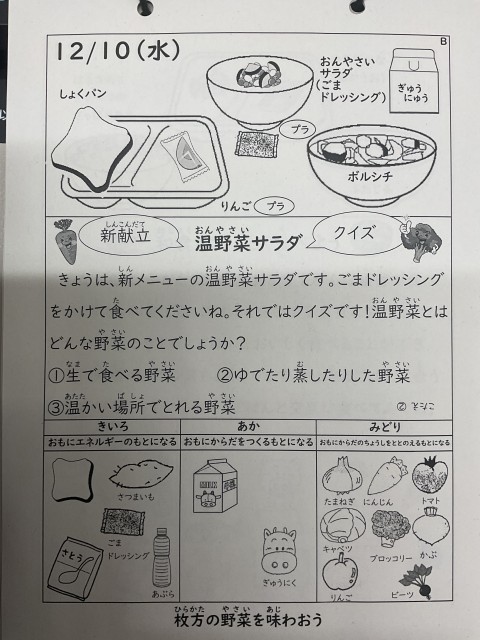 B
12/10(水)
しょくパン
おんやさい
サラダ
(ごま
ドレッシング)
ぎゅう
にゅう
プラ
ボルシチ
りんご プラ
新献立
しんこんだて
温野菜サラダ
おんやさい
クイズ
きょうは、新メニューの温野菜サラダです。ごまドレッシング
をかけて食べてくださいね。それではクイズです!温野菜とは
どんな野菜のことでしょうか?
①生で食べる野菜 ②ゆでたり蒸したりした野菜
③温かい場所でとれる野菜 ② こたえ
きいろ
おもにエネルギーのもとになる
あか
おもにからだをつくるもとになる
みどり
おもにからだのちょうしをととのえるもとになる
さつまいも
ごま
ドレッシング
さとう
あぶら
MILK
ぎゅうにく
たまねぎ にんじん トマト
キャベツ ブロッコリー かぶ
りんご ビーツ
ひらかた やさい あじ
枚方の野菜を味わおう